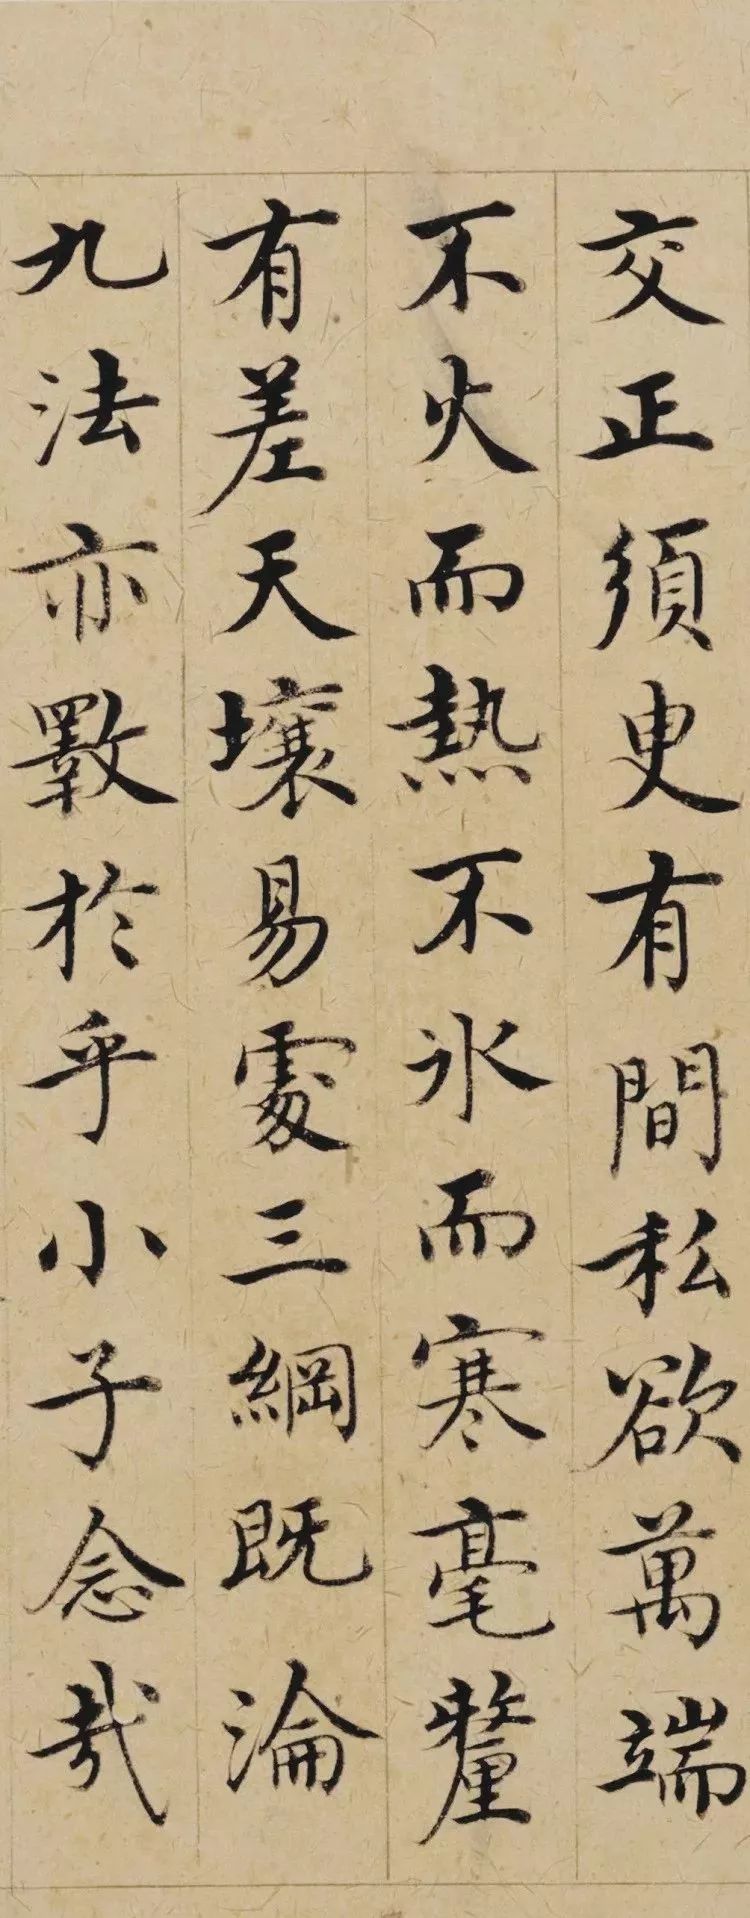 交正須臾有間私欲萬端
不火而熱不氷而寒毫釐
有差天壤易處三綱既淪
九法亦斁於乎小子念哉